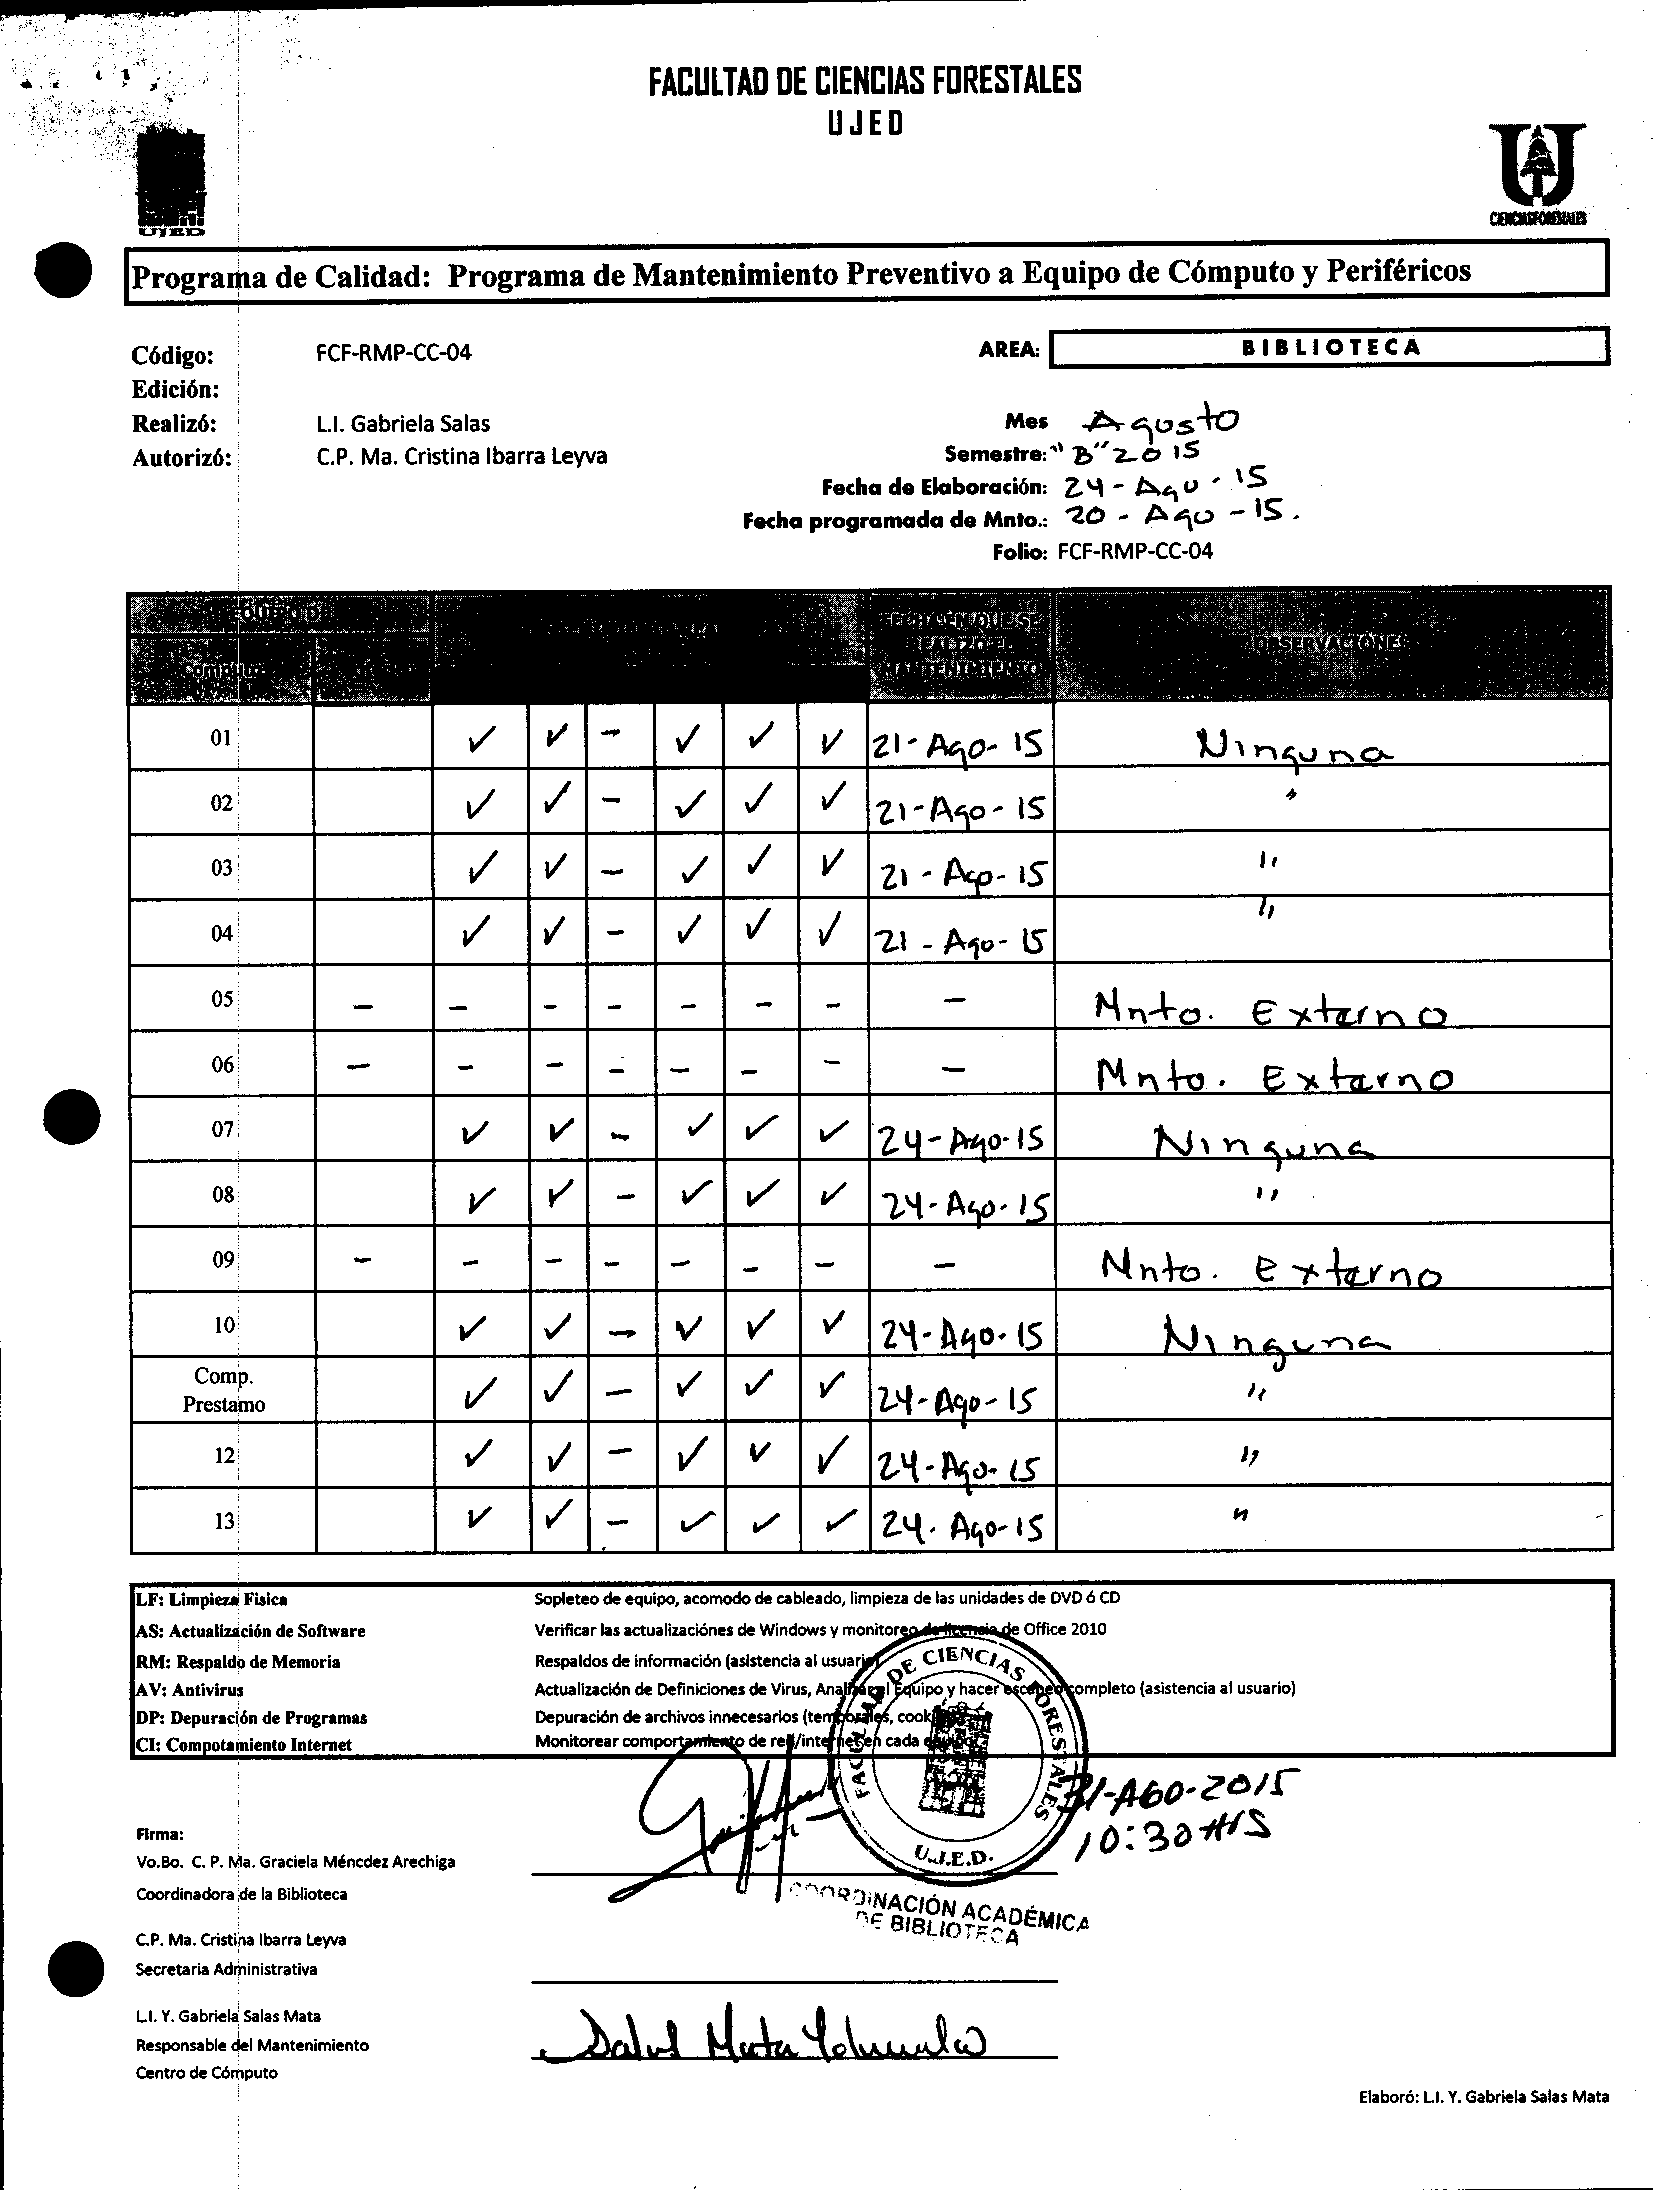 FACULTAD DE CIENCIAS FORESTALES
UJED
UJED
CIENCIAS FORESTALES
Programa de Calidad: Programa de Mantenimiento Preventivo a Equipo de Cómputo y Periféricos
Código: FCF-RMP-CC-04
AREA: BIBLIOTECA
Edición:
Realizó: L.I. Gabriela Salas
Mes Agosto
Autorizó: C.P. Ma. Cristina Ibarra Leyva
Semestre: "B" 2015
Fecha de Elaboración: 24-Ago-15
Fecha programada de Mnto.: 20-Ago-15.
Folio: FCF-RMP-CC-04
FECHA EN QUE SE
REALIZO EL
MANTENIMIENTO
OBSERVACIONES
01 ✓ ✓ - ✓ ✓ ✓ 21-Ago-15 Ninguna
02 ✓ ✓ - ✓ ✓ ✓ 21-Ago-15 "
03 ✓ ✓ - ✓ ✓ ✓ 21-Ago-15 "
04 ✓ ✓ - ✓ ✓ ✓ 21-Ago-15 "
05 - - - - - - - - Mnto. Externo
06 - - - - - - - - Mnto. Externo
07 ✓ ✓ - ✓ ✓ ✓ 24-Ago-15 Ninguna
08 ✓ ✓ - ✓ ✓ ✓ 24-Ago-15 "
09 - - - - - - - - Mnto. externo
10 ✓ ✓ - ✓ ✓ ✓ 24-Ago-15 Ninguna
Comp.
Prestamo ✓ ✓ - ✓ ✓ ✓ 24-Ago-15 "
12 ✓ ✓ - ✓ ✓ ✓ 24-Ago-15 "
13 ✓ ✓ - ✓ ✓ ✓ 24-Ago-15 "
LF: Limpieza Fisica Sopleteo de equipo, acomodo de cableado, limpieza de las unidades de DVD ó CD
AS: Actualización de Software Verificar las actualizaciónes de Windows y monitoreo de licencia de Office 2010
RM: Respaldo de Memoria Respaldos de información (asistencia al usuario)
AV: Antivirus Actualización de Definiciones de Virus, Analizar el Equipo y hacer escaneo completo (asistencia al usuario)
DP: Depuración de Programas Depuración de archivos innecesarios (temporales,
CI: Compotamiento Internet Monitorear comportamiento de red/internet en cada equipo
FACULTAD DE CIENCIAS FORESTALES
U.J.E.D.
COORDINACIÓN ACADÉMICA
DE BIBLIOTECA
31-AGO-2015
10:30 Hrs
Firma:
Vo.Bo. C. P. Ma. Graciela Méncdez Arechiga
Coordinadora de la Biblioteca
C.P. Ma. Cristina Ibarra Leyva
Secretaria Administrativa
L.I. Y. Gabriela Salas Mata
Responsable del Mantenimiento
Centro de Cómputo
Salas Mata
Elaboró: L.I. Y. Gabriela Salas Mata